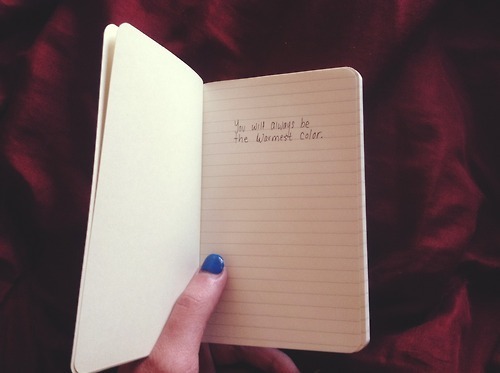 You will always be
the warmest color.